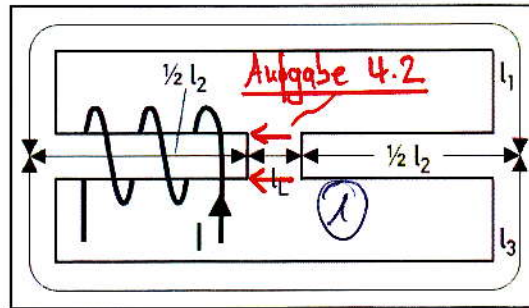 ½ l₂
Aufgabe 4.2
l₁
½ l₂
l_L
I
1
l₃